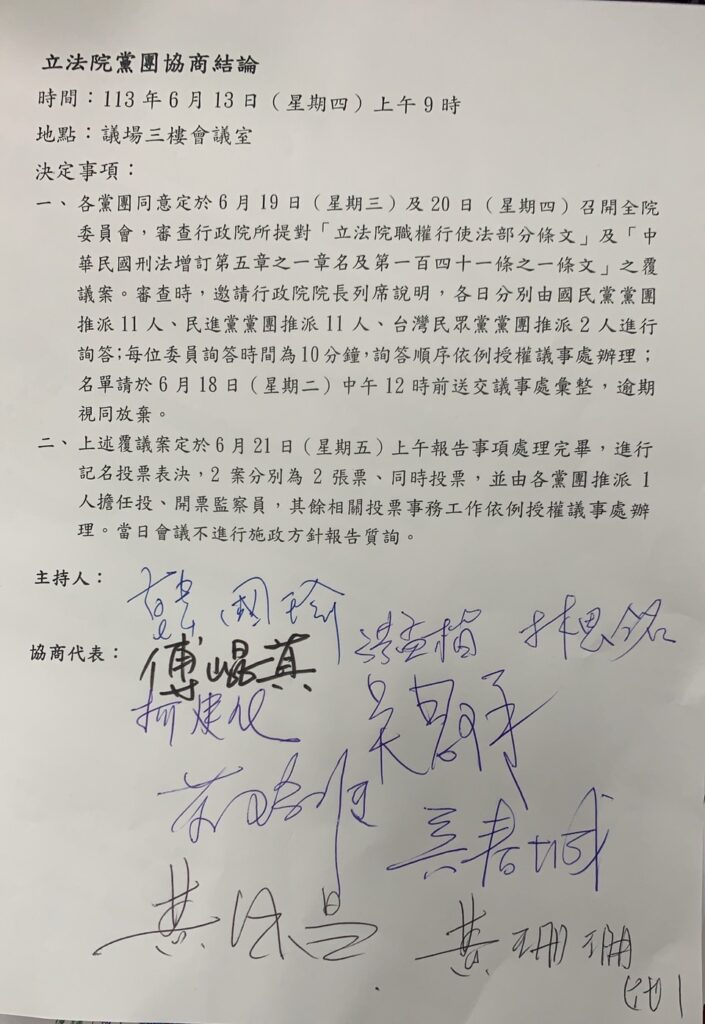 立法院黨團協商結論
時間：113 年 6 月 13 日（星期四）上午 9 時
地點：議場三樓會議室
決定事項：
一、各黨團同意定於 6 月 19 日（星期三）及 20 日（星期四）召開全院
委員會，審查行政院所提對「立法院職權行使法部分條文」及「中
華民國刑法增訂第五章之一章名及第一百四十一條之一條文」之覆
議案。審查時，邀請行政院院長列席說明，各日分別由國民黨黨團
推派 11 人、民進黨黨團推派 11 人、台灣民眾黨黨團推派 2 人進行
詢答；每位委員詢答時間為 10 分鐘，詢答順序依例授權議事處辦理；
名單請於 6 月 18 日（星期二）中午 12 時前送交議事處彙整，逾期
視同放棄。
二、上述覆議案定於 6 月 21 日（星期五）上午報告事項處理完畢，進行
記名投票表決，2 案分別為 2 張票、同時投票，並由各黨團推派 1
人擔任投、開票監察員，其餘相關投票事務工作依例授權議事處辦
理。當日會議不進行施政方針報告質詢。
主持人：
韓國瑜
洪孟楷 林思銘
協商代表：
傅崐萁
柯建銘 吳思瑤
吳春城
黃國昌 黃珊珊